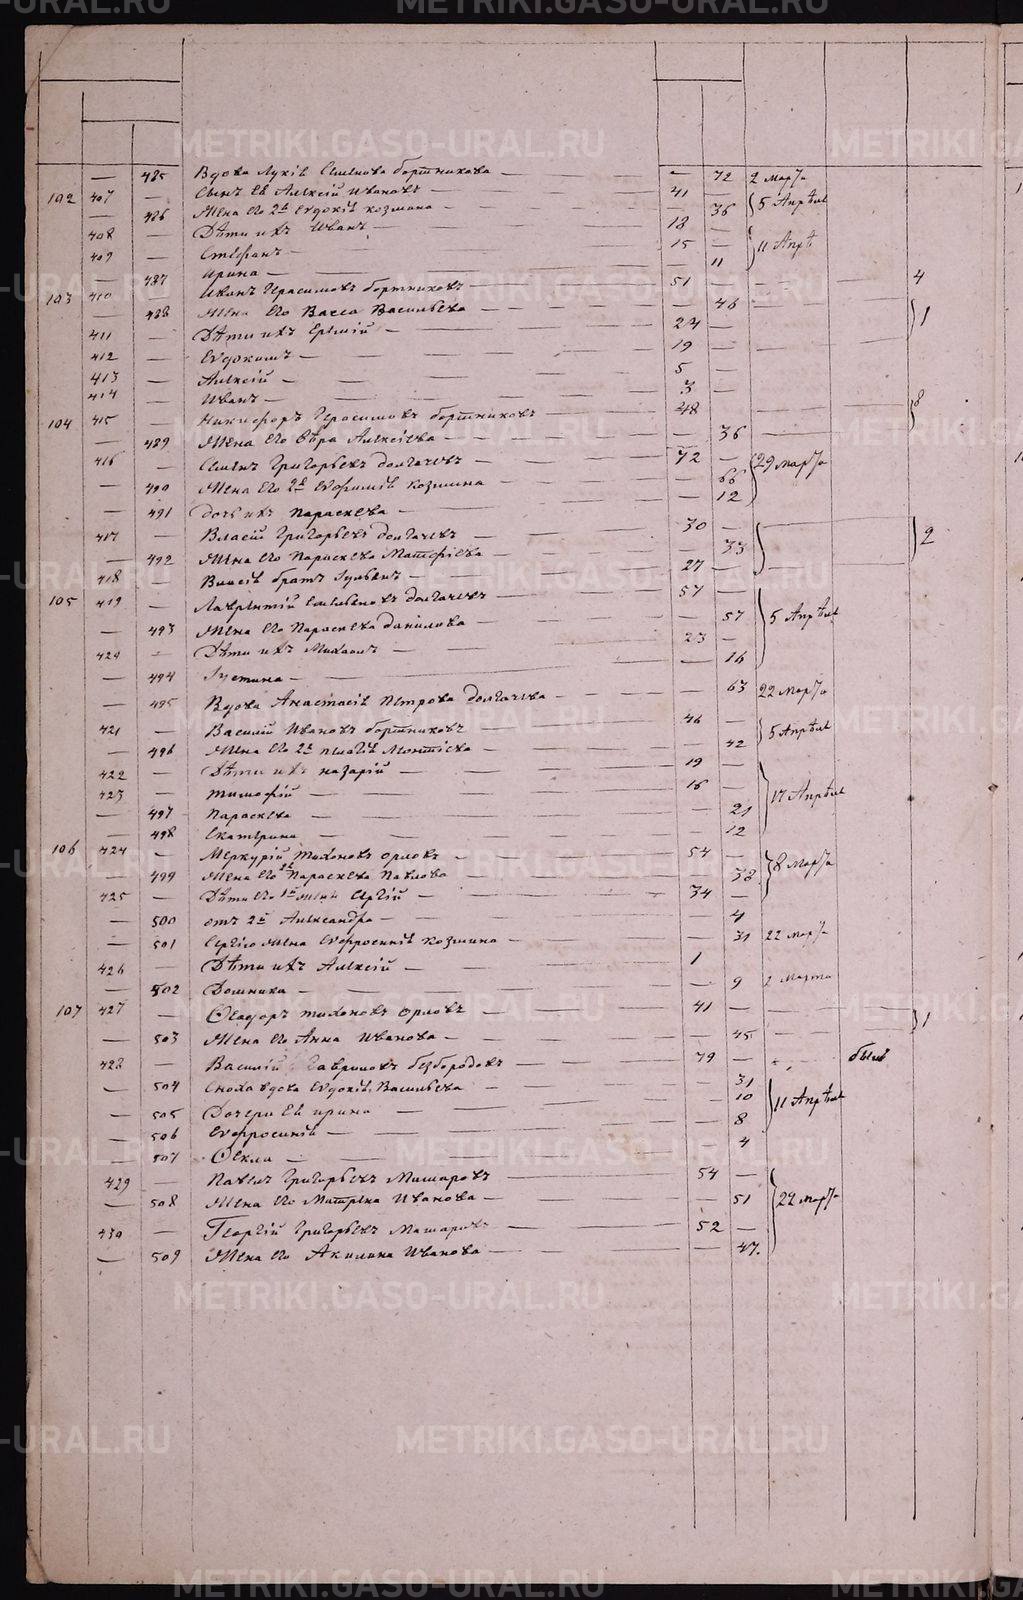 — 485 Вдова Лукія Семенова Бортникова — — 72 2 марта
102 407 — Сынъ ея Алексій Ивановъ — 41 — 5 Апрѣля
— 486 Жена его 2я Евдокія Козмина — — 36
408 — Дѣти ихъ Иванъ — 18 — 11 Апрѣ
409 — Стефанъ — 15 —
— 487 Ирина — — 11
103 410 — Иванъ Герасимовъ Бортниковъ — 51 — 4
— 488 Жена его Васса Васильева — — 46 1
411 — Дѣти ихъ Еремій — 24 —
412 — Евдокимъ — 19 —
413 — Алексій — 5 —
414 — Иванъ — 3 —
104 415 — Никифоръ Герасимовъ Бортниковъ — 48 — 8
— 489 Жена его Вѣра Алексіева — — 36
416 — Семенъ Григорьевъ Долгачевъ — 72 — 29 марта
— 490 Жена его 2я Евфимія Козмина — — 66
— 491 Дочь ихъ Параскева — — 12
417 — Власій Григорьевъ Долгачевъ — 30 — 2
— 492 Жена его Параскева Матфіева — — 33
418 — Власія братъ — 27 —
105 419 — Лаврентій Долгачевъ — 57 — 5 Апрѣля
— 493 Жена его Параскева Данилова — — 57
420 — Дѣти ихъ Михаилъ — 23 —
— 494 Іустина — — 16
— 495 Вдова Анастасія Петрова Долгачева — — 63 22 марта
421 — Василій Ивановъ Бортниковъ — 46 — 5 Апрѣля
— 496 Жена его 2я — — 42
422 — Дѣти ихъ Назарій — 19 —
423 — Тимофій — 16 — 17 Апрѣля
— 497 Параскева — — 21
— 498 Екатерина — — 12
106 424 — Меркурій Тихоновъ Орловъ — 54 — 8 марта
— 499 Жена его 2я Параскева Павлова — — 38
425 — Дѣти его 1й жены Сергій — 34 —
— 500 отъ 2й Александра — — 4
— 501 Сергія жена Евфросинія Козмина — — 31 22 марта
426 — Дѣти ихъ Алексій — 1
— 502 Домника — — 9 2 марта
107 427 — Ѳеодоръ Тихоновъ Орловъ — 41 — 1
— 503 Жена его Анна Иванова — — 45
428 — Василій Гавриловъ Безбородовъ — 79 — былъ
— 504 Сноха вдова Евдокія Васильева — — 31
— 505 Дочери ея Ирина — — 10 11 Апрѣля
— 506 Евфросинія — — 8
— 507 Ѳекла — — 4
429 — Павелъ Григорьевъ Машаровъ — 54 —
— 508 Жена его Матрена Иванова — — 51 22 марта
430 — Георгій Григорьевъ Машаровъ — 52 —
— 509 Жена его Акилина Иванова — — 47.